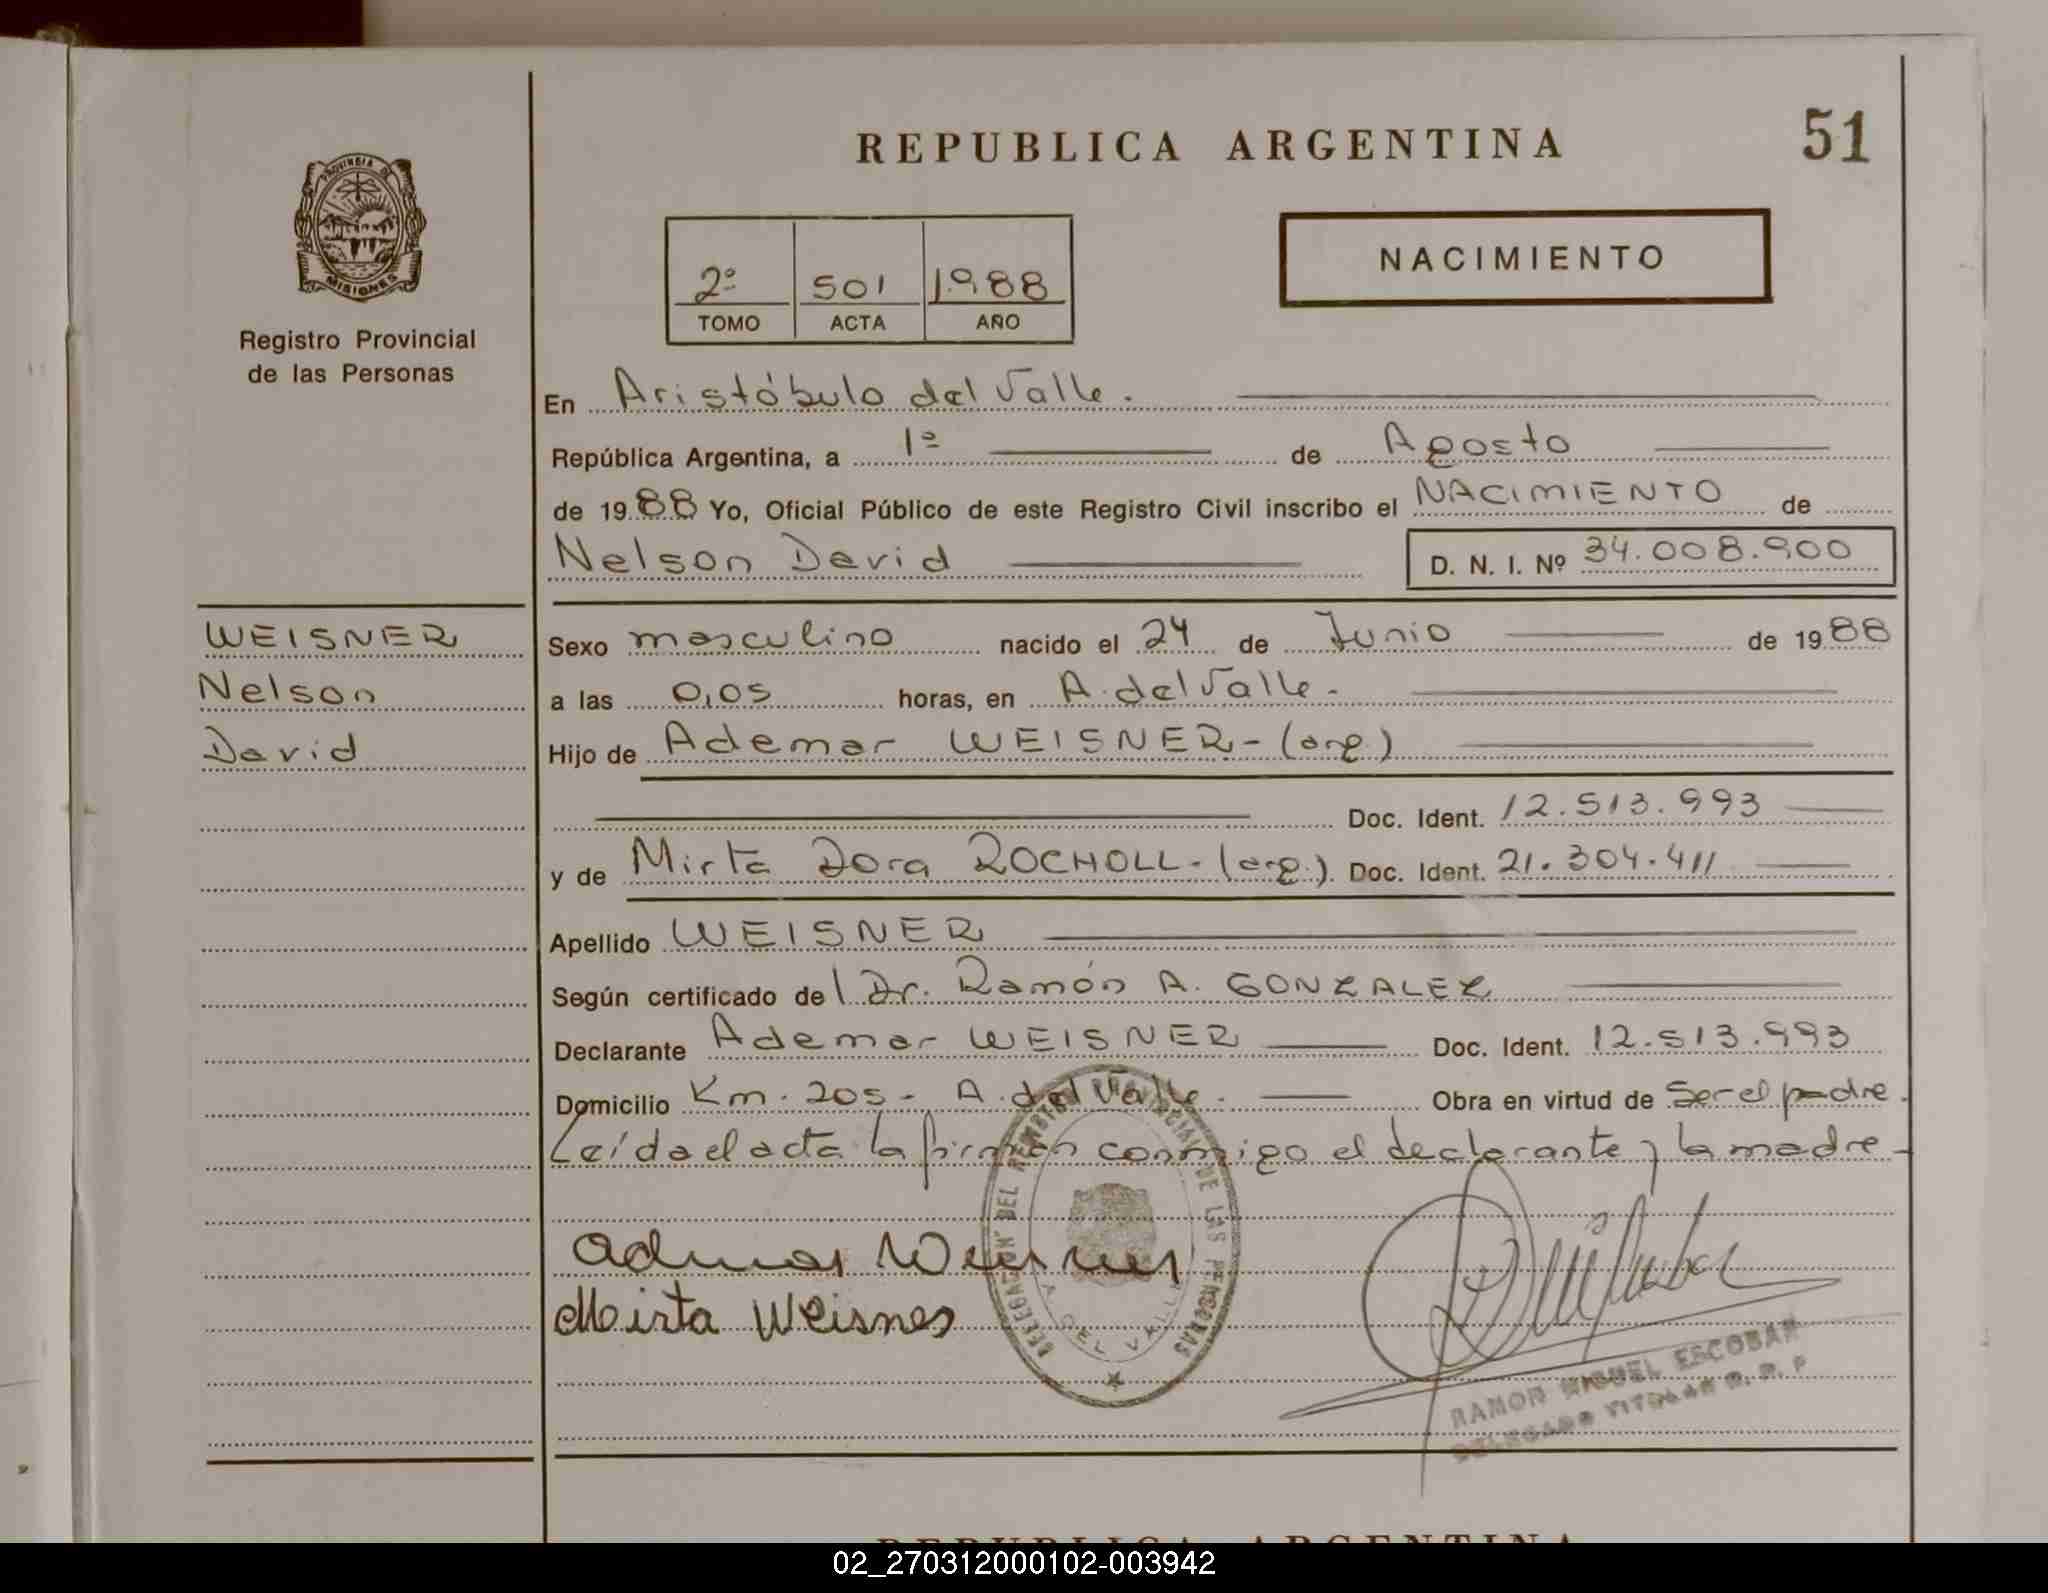 51
REPUBLICA ARGENTINA
PROVINCIA DE
MISIONES
Registro Provincial
de las Personas
NACIMIENTO
2º 501 1988
TOMO ACTA AÑO
En Aristóbulo del Valle.
República Argentina, a 1º de Agosto
de 1988 Yo, Oficial Público de este Registro Civil inscribo el NACIMIENTO de
Nelson David D. N. I. Nº 34.008.900
WEISNER
Nelson
David
Sexo masculino nacido el 24 de Junio de 1988
a las 0,05 horas, en A. del Valle.
Hijo de Ademar WEISNER - (arg.)
Doc. Ident. 12.513.993
y de Mirta Dora ROCHOLL - (arg.) Doc. Ident. 21.304.411
Apellido WEISNER
Según certificado del Dr. Ramón A. GONZALEZ
Declarante Ademar WEISNER Doc. Ident. 12.513.993
Domicilio Km. 205 - A. del Valle. Obra en virtud de Ser el padre.
Leída el acta la firman conmigo el declarante y la madre -
DELEGACION DEL REGISTRO PROVINCIAL DE LAS PERSONAS
A. DEL VALLE
Mirta Weisner
RAMON MIGUEL ESCOBAR
DELEGADO TITULAR R. P. P
REPUBLICA ARGENTINA
02_270312000102-003942